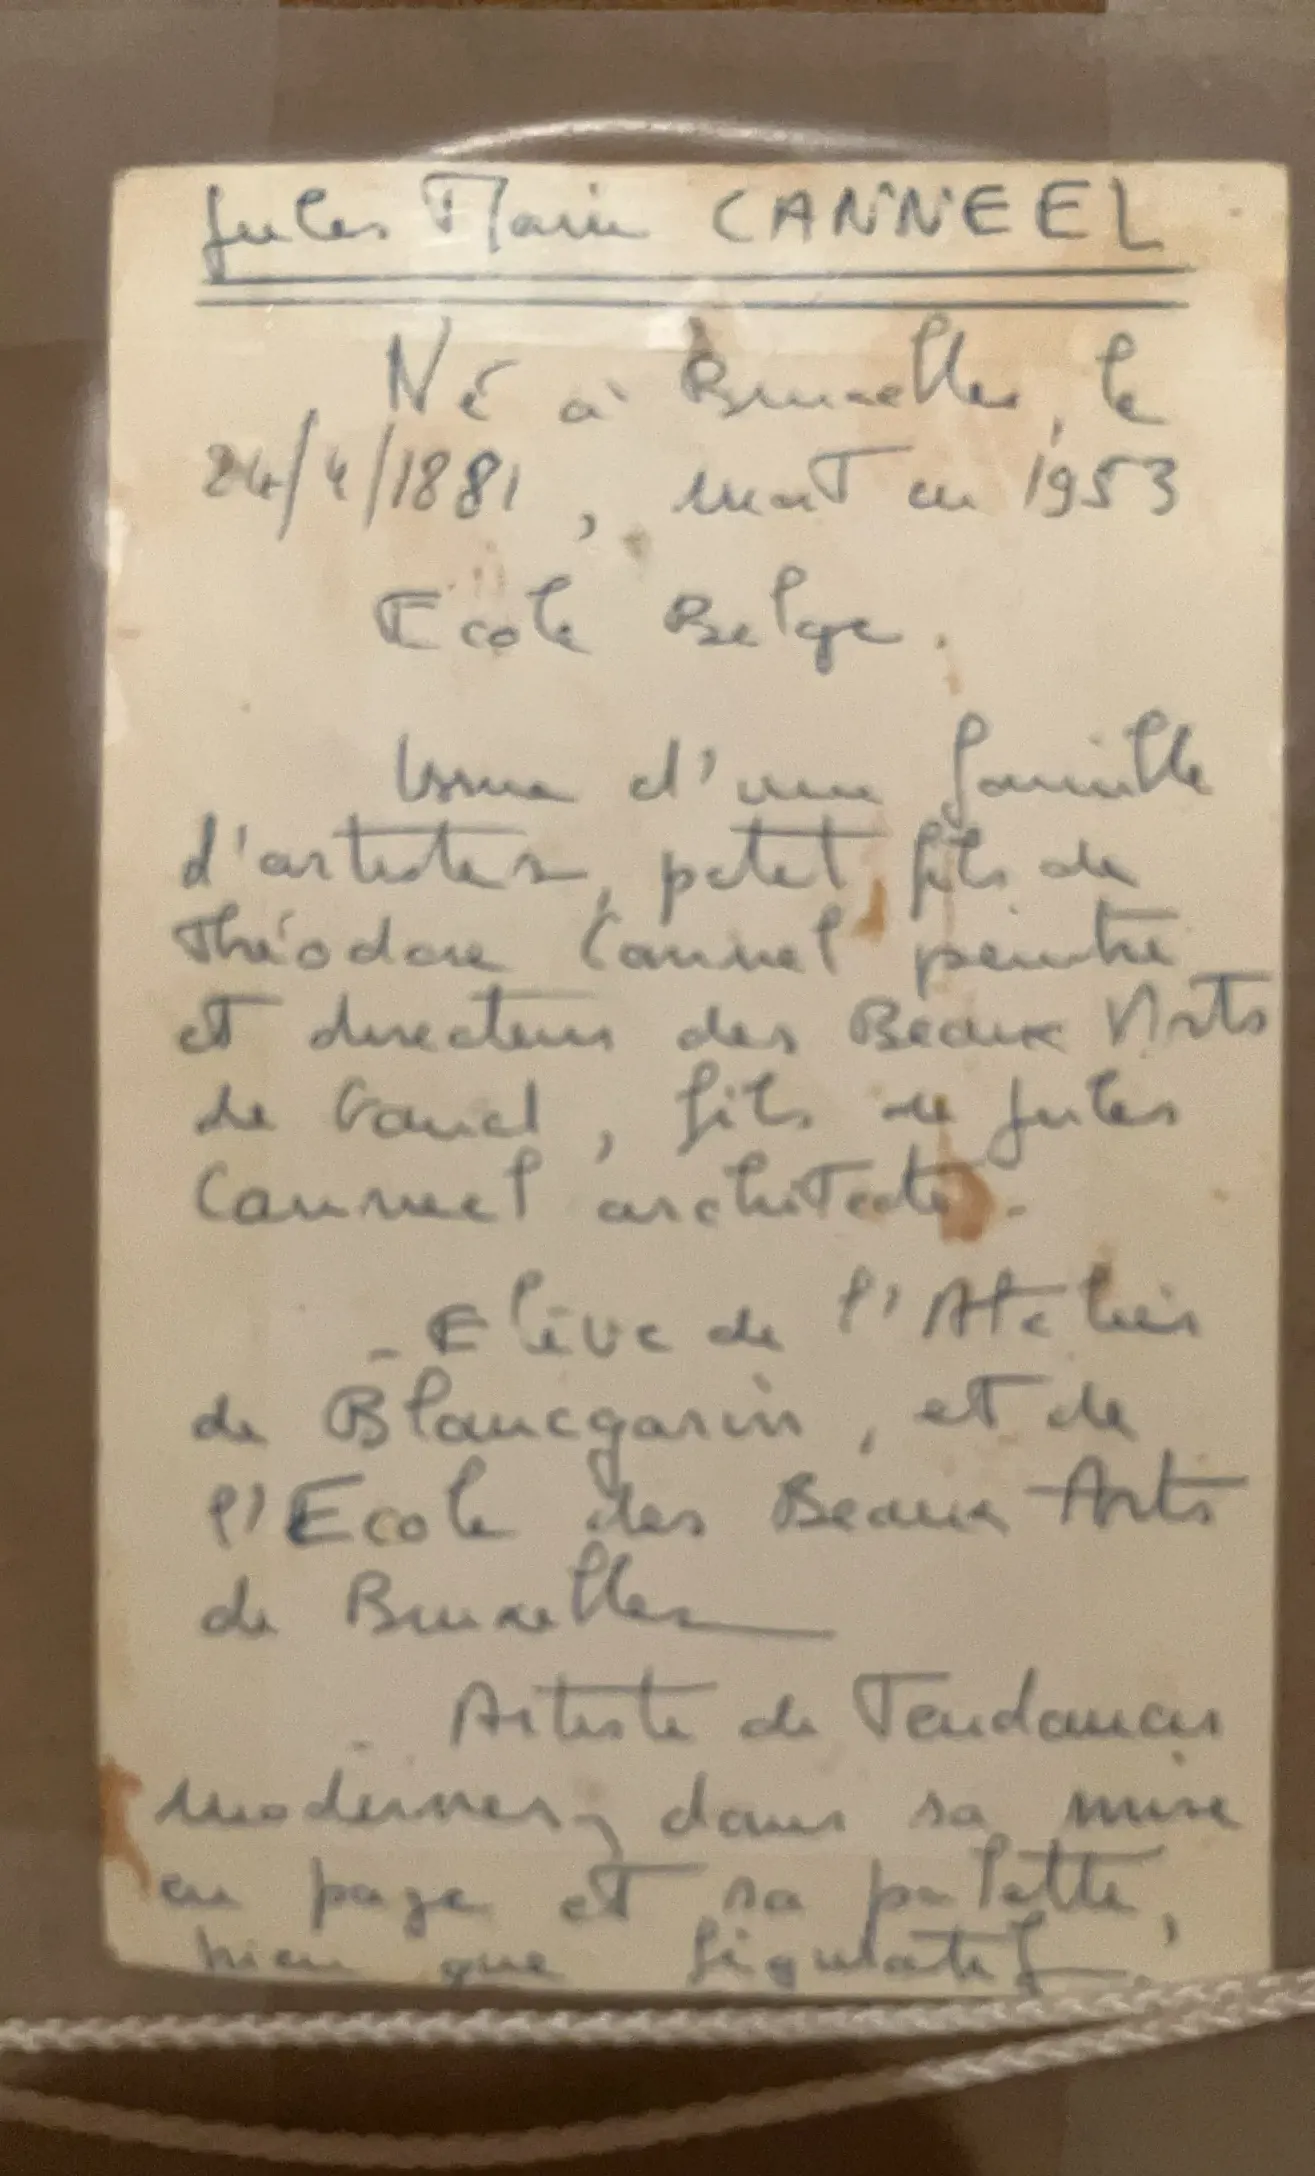 Jules Marie CANNEEL
Né à Bruxelles, le
24/4/1881, mort en 1953
Ecole Belge.
Issue d'une famille
d'artistes, petit fils de
Théodore Canneel peintre
et directeur des Beaux Arts
de Gand, fils de Jules
Canneel architecte.
- Elève de l'Atelier
de Blancgarin, et de
l'Ecole des Beaux Arts
de Bruxelles
- Artiste de Tendances
modernes, dans sa mise
en page et sa palette,
bien que figuratif.